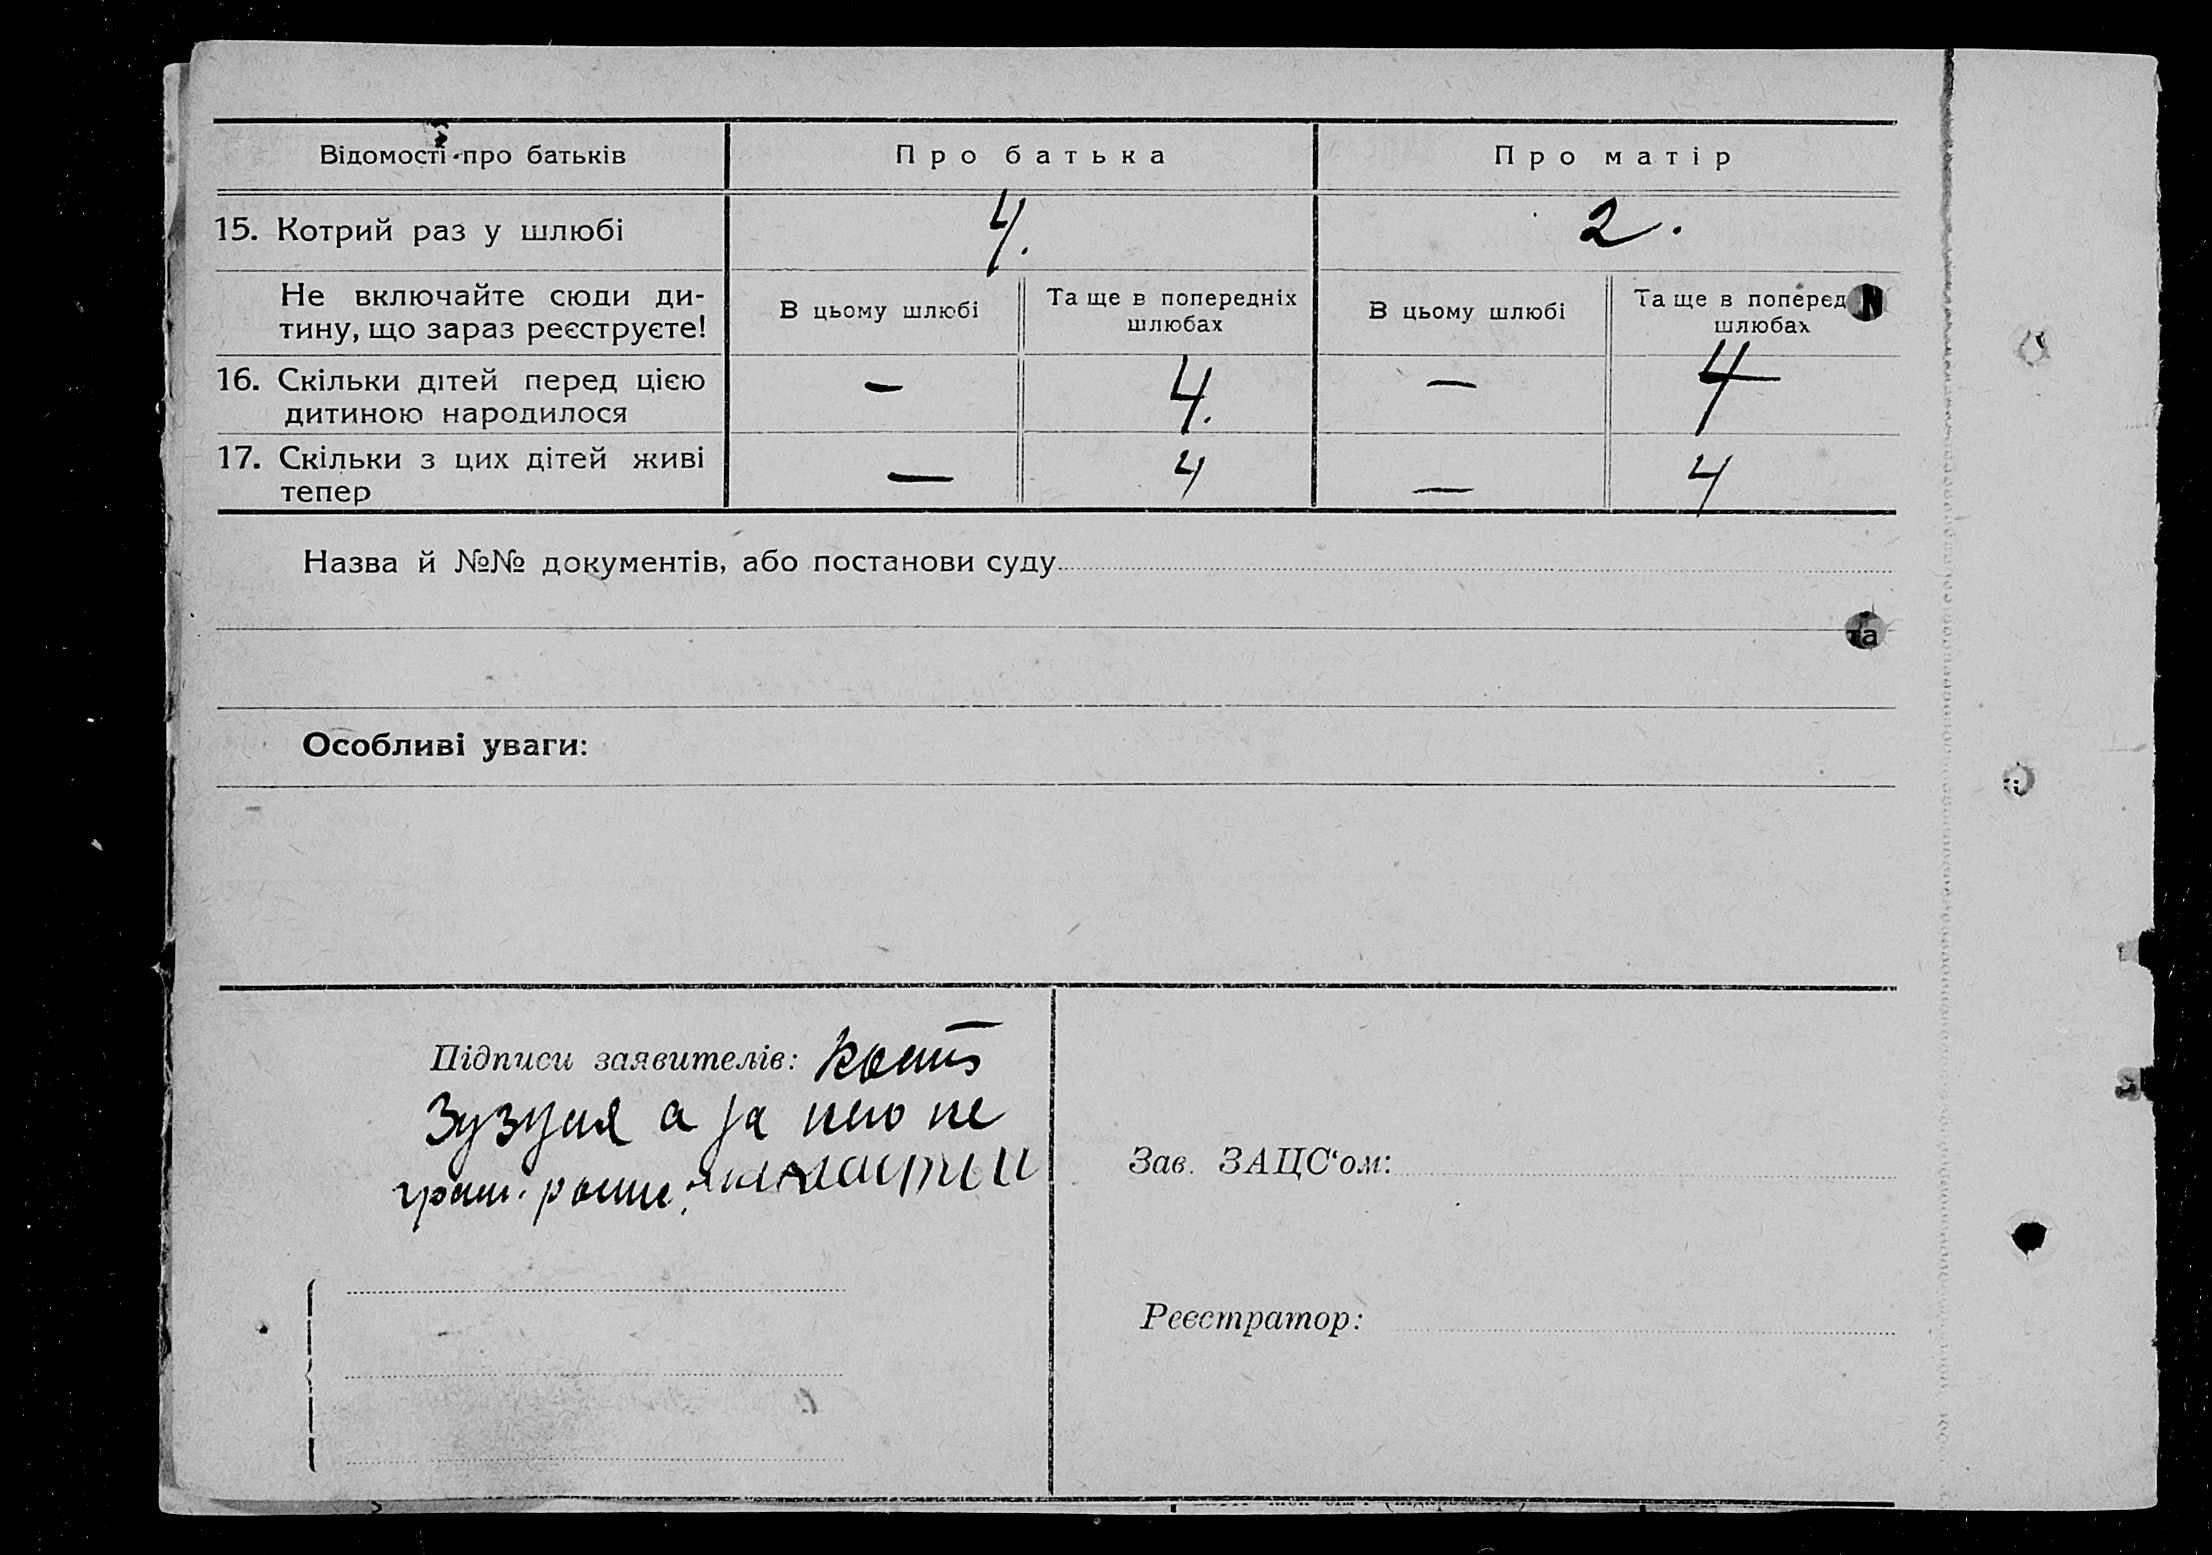 Відомості про батьків
Про батька
Про матір
15. Котрий раз у шлюбі
4.
2.
Не включайте сюди ди-
тину, що зараз реєструєте!
В цьому шлюбі
Та ще в попередніх
шлюбах
В цьому шлюбі
Та ще в поперед
шлюбах
16. Скільки дітей перед цією
дитиною народилося
–
4.
–
4
17. Скільки з цих дітей живі
тепер
–
4
–
4
Назва й №№ документів, або постанови суду
та
Особливі уваги:
Підписи заявителів:
Зузуля а за не
Зав. ЗАЦС‘ом:
Реєстратор: